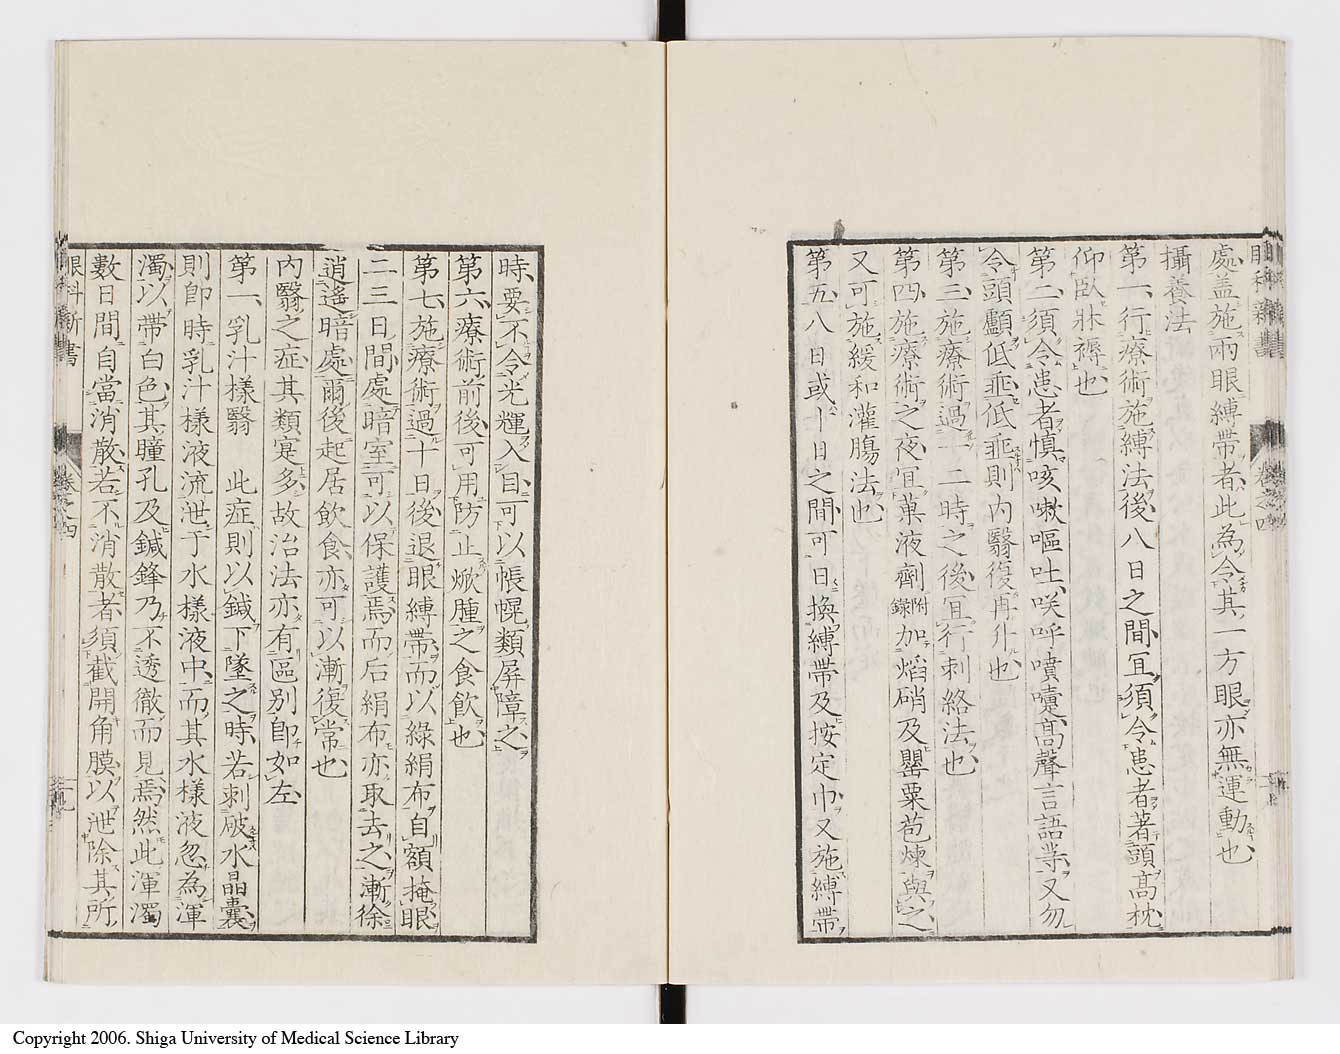 眼科新書 卷之四
處盖施兩眼縛帶者此為令其一方眼亦無運動也
攝養法
第一行療術施縛法後八日之間冝須令患者著頭高枕
仰臥牀褥也
第二須令患者慎咳嗽嘔吐咲呼噴嚔高聲言語業又勿
令頭顱低垂低垂則內翳復再升也
第三施療術過十二時之後冝行刺絡法也
第四施療術之夜冝菓液劑附錄加焰硝及罌粟苞煉與之
又可施緩和灌腸法也
第五八日或十日之間可日換縛帶及按定巾又施縛帶
時要不令光輝入目可以帳幌類屏障之
第六療術前後可用防止焮腫之食飲也
第七施療術過十日後退眼縛帶而以綠絹布自額掩眼
二三日間處暗室可以保護焉而后絹布亦取去之漸徐
逍遙暗處爾後起居飲食亦可以漸復常也
內翳之症其類寔多故治法亦有區別卽如左
第一乳汁樣翳 此症則以鍼下墜之時若刺破水晶囊
則卽時乳汁樣液流泄于水樣液中而其水樣液忽為渾
濁以帶白色其瞳孔及鍼鋒乃不透徹而見焉然此渾濁
數日間自當消散若不消散者須截開角膜以泄除其所
眼科新書 卷之四
Copyright 2006. Shiga University of Medical Science Library